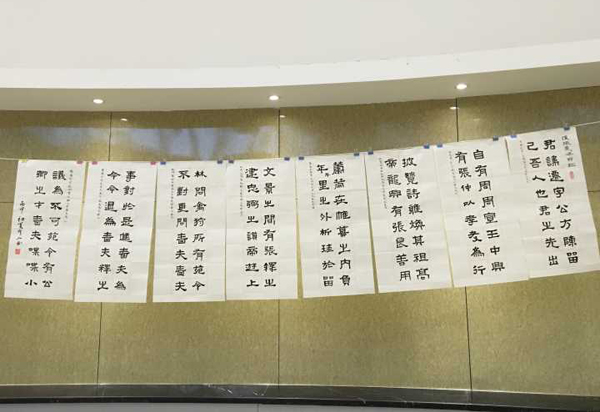 君諱遷字公方陳留
己吾人也君之先出
自有周周宣王中興
有張仲以孝友為行
披覽詩雅煥其祖高
帝龍興有張良善用
籌策在帷幕之內負
千里之外析珪於留
文景之間有張釋之
建忠弼之謨帝遊上
林問禽狩所有苑令
不對更問嗇夫嗇夫
事對於是進嗇夫為
令令退為嗇夫釋之
議為不可苑令有公
卿之才嗇夫喋喋小